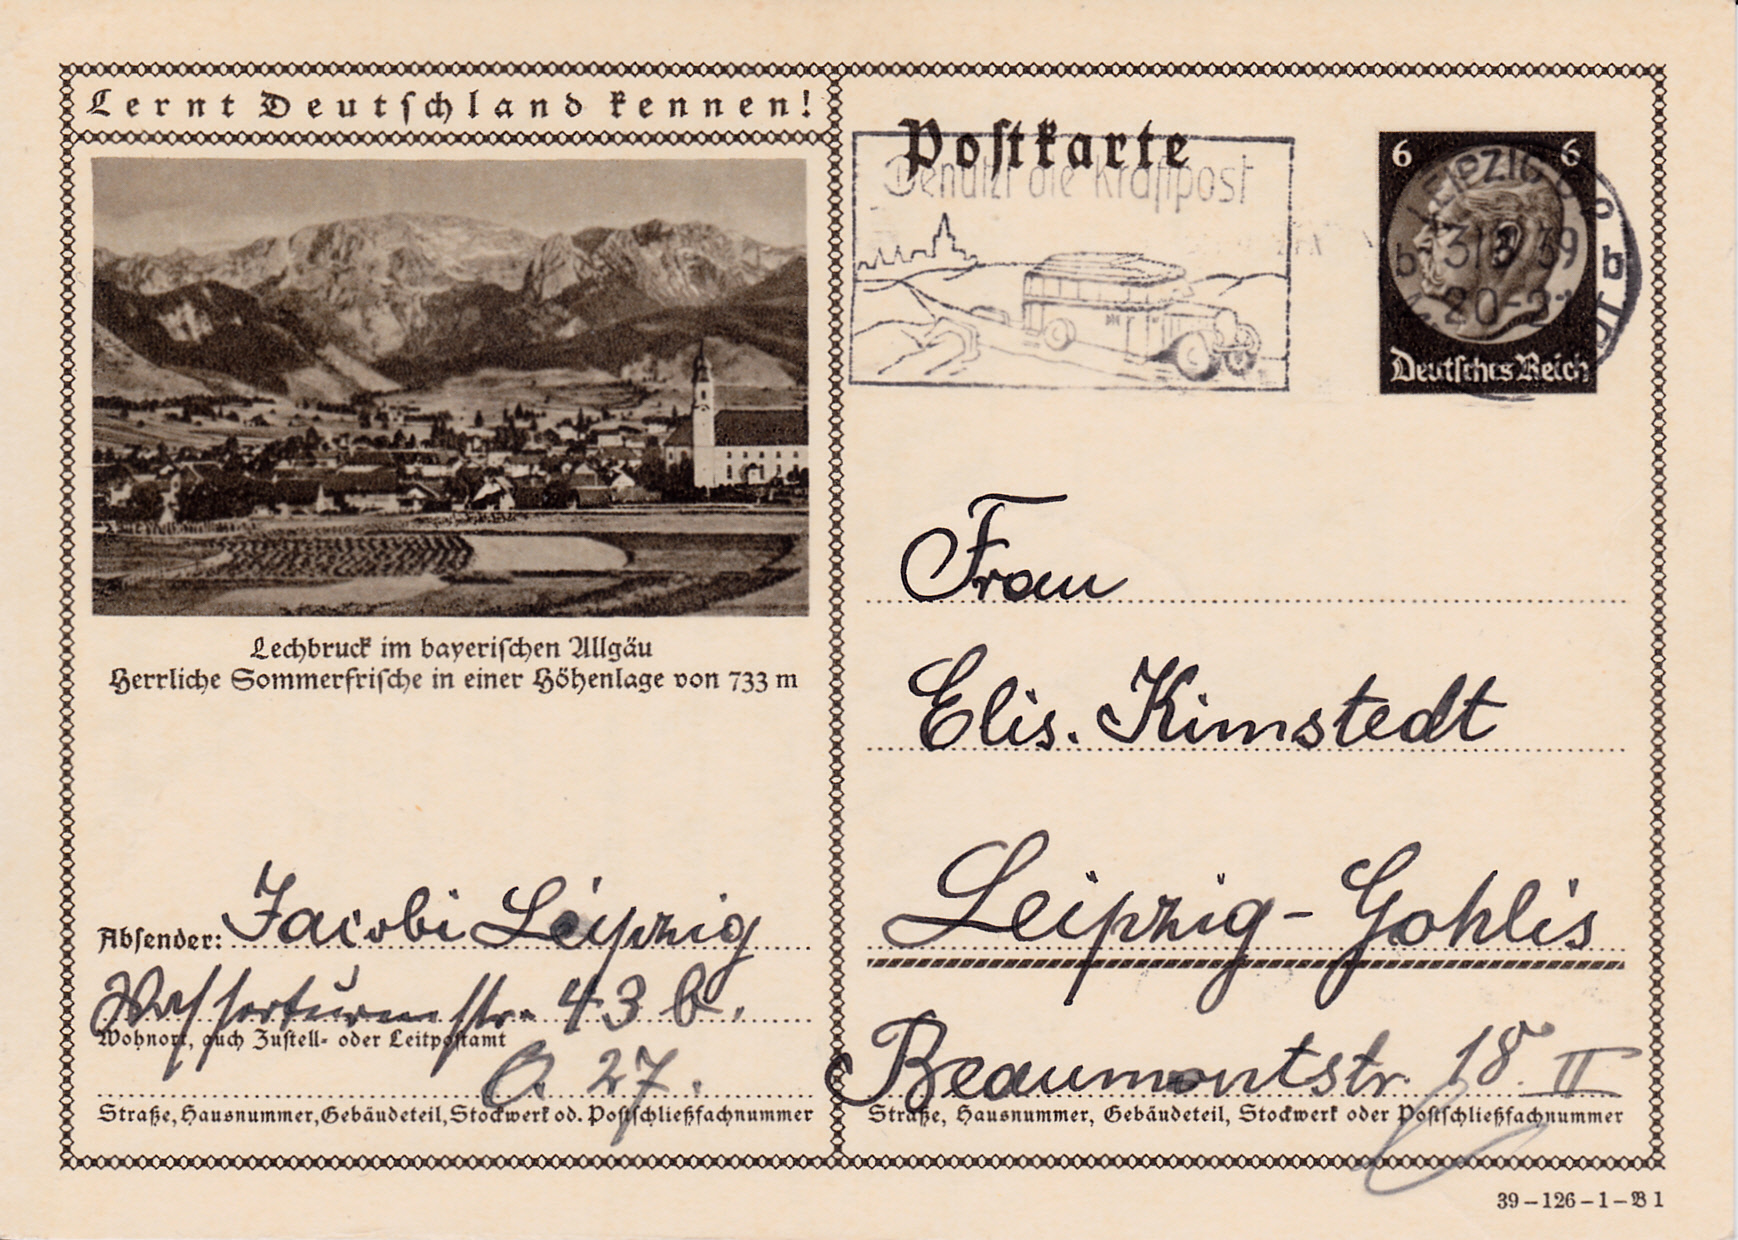 Lernt Deutschland kennen!
Lechbruck im bayerischen Allgäu
Herrliche Sommerfrische in einer Höhenlage von 733 m
Absender: Jacobi Leipzig
Wasserturmstr. 43 b.
Wohnort, auch Zustell- oder Leitpostamt
O. 27.
Straße, Hausnummer, Gebäudeteil, Stockwerk od. Postschließfachnummer
Postkarte
Benutzt die Kraftpost
6 6
LEIPZIG
39
20-21
b b
Deutsches Reich
Frau
Elis. Kimstedt
Leipzig-Gohlis
Beaumontstr. 18 II
Straße, Hausnummer, Gebäudeteil, Stockwerk oder Postschließfachnummer
39-126-1-B 1